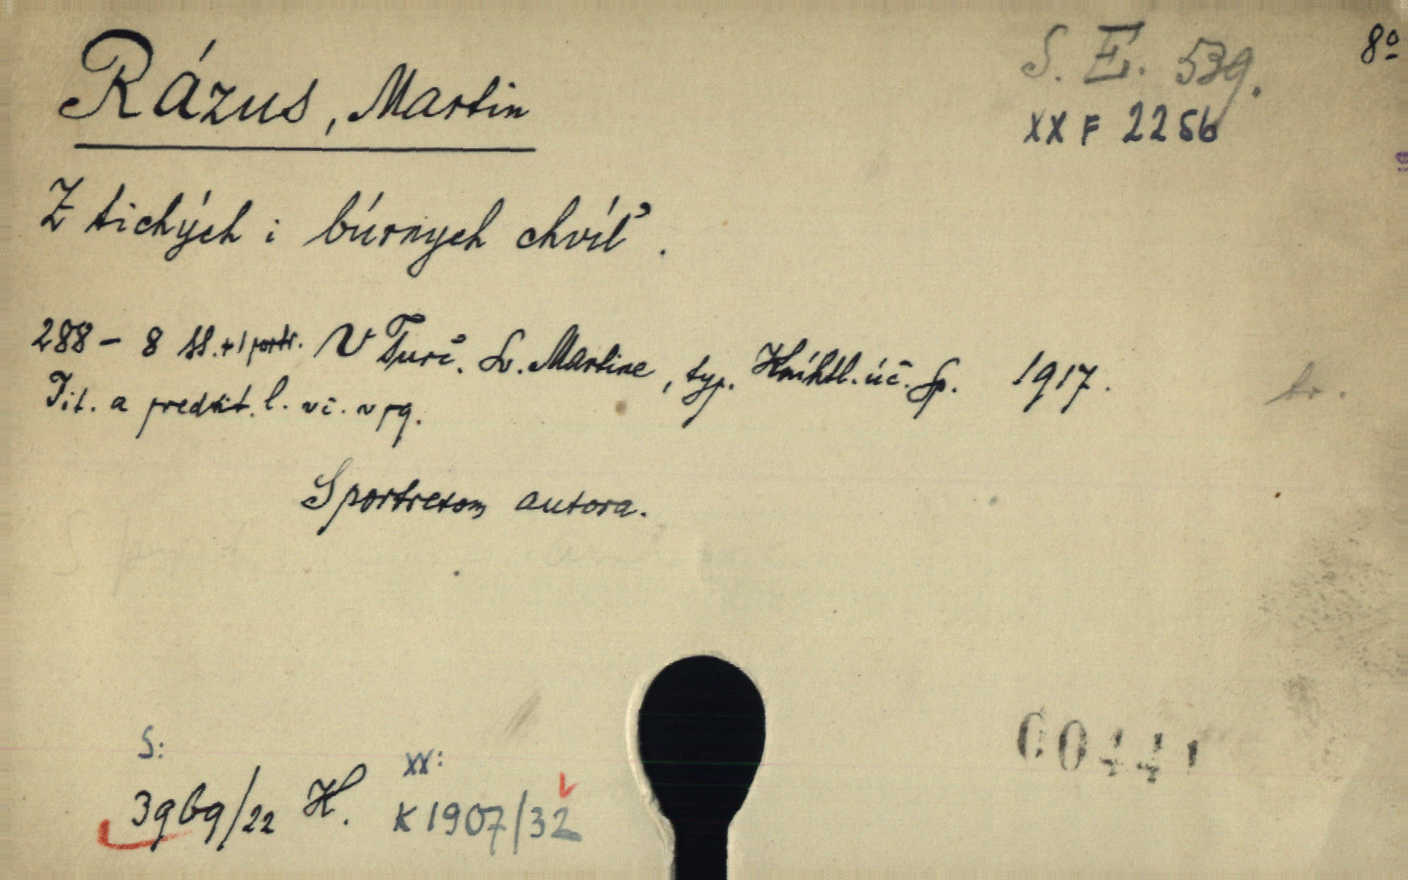 Rázus, Martin
S. E. 539.
8º
XX F 2256
Z tichých i búrnych chvíľ.
288 – 8 ss. + 1 portr. V Turč. Sv. Martine, typ. Kníhtl. úč. sp. 1917.
Tit. a predtit. l. vč. v pg.
tr.
S portretom autora.
S:
3969/22 H.
XX:
K 1907/32
60441